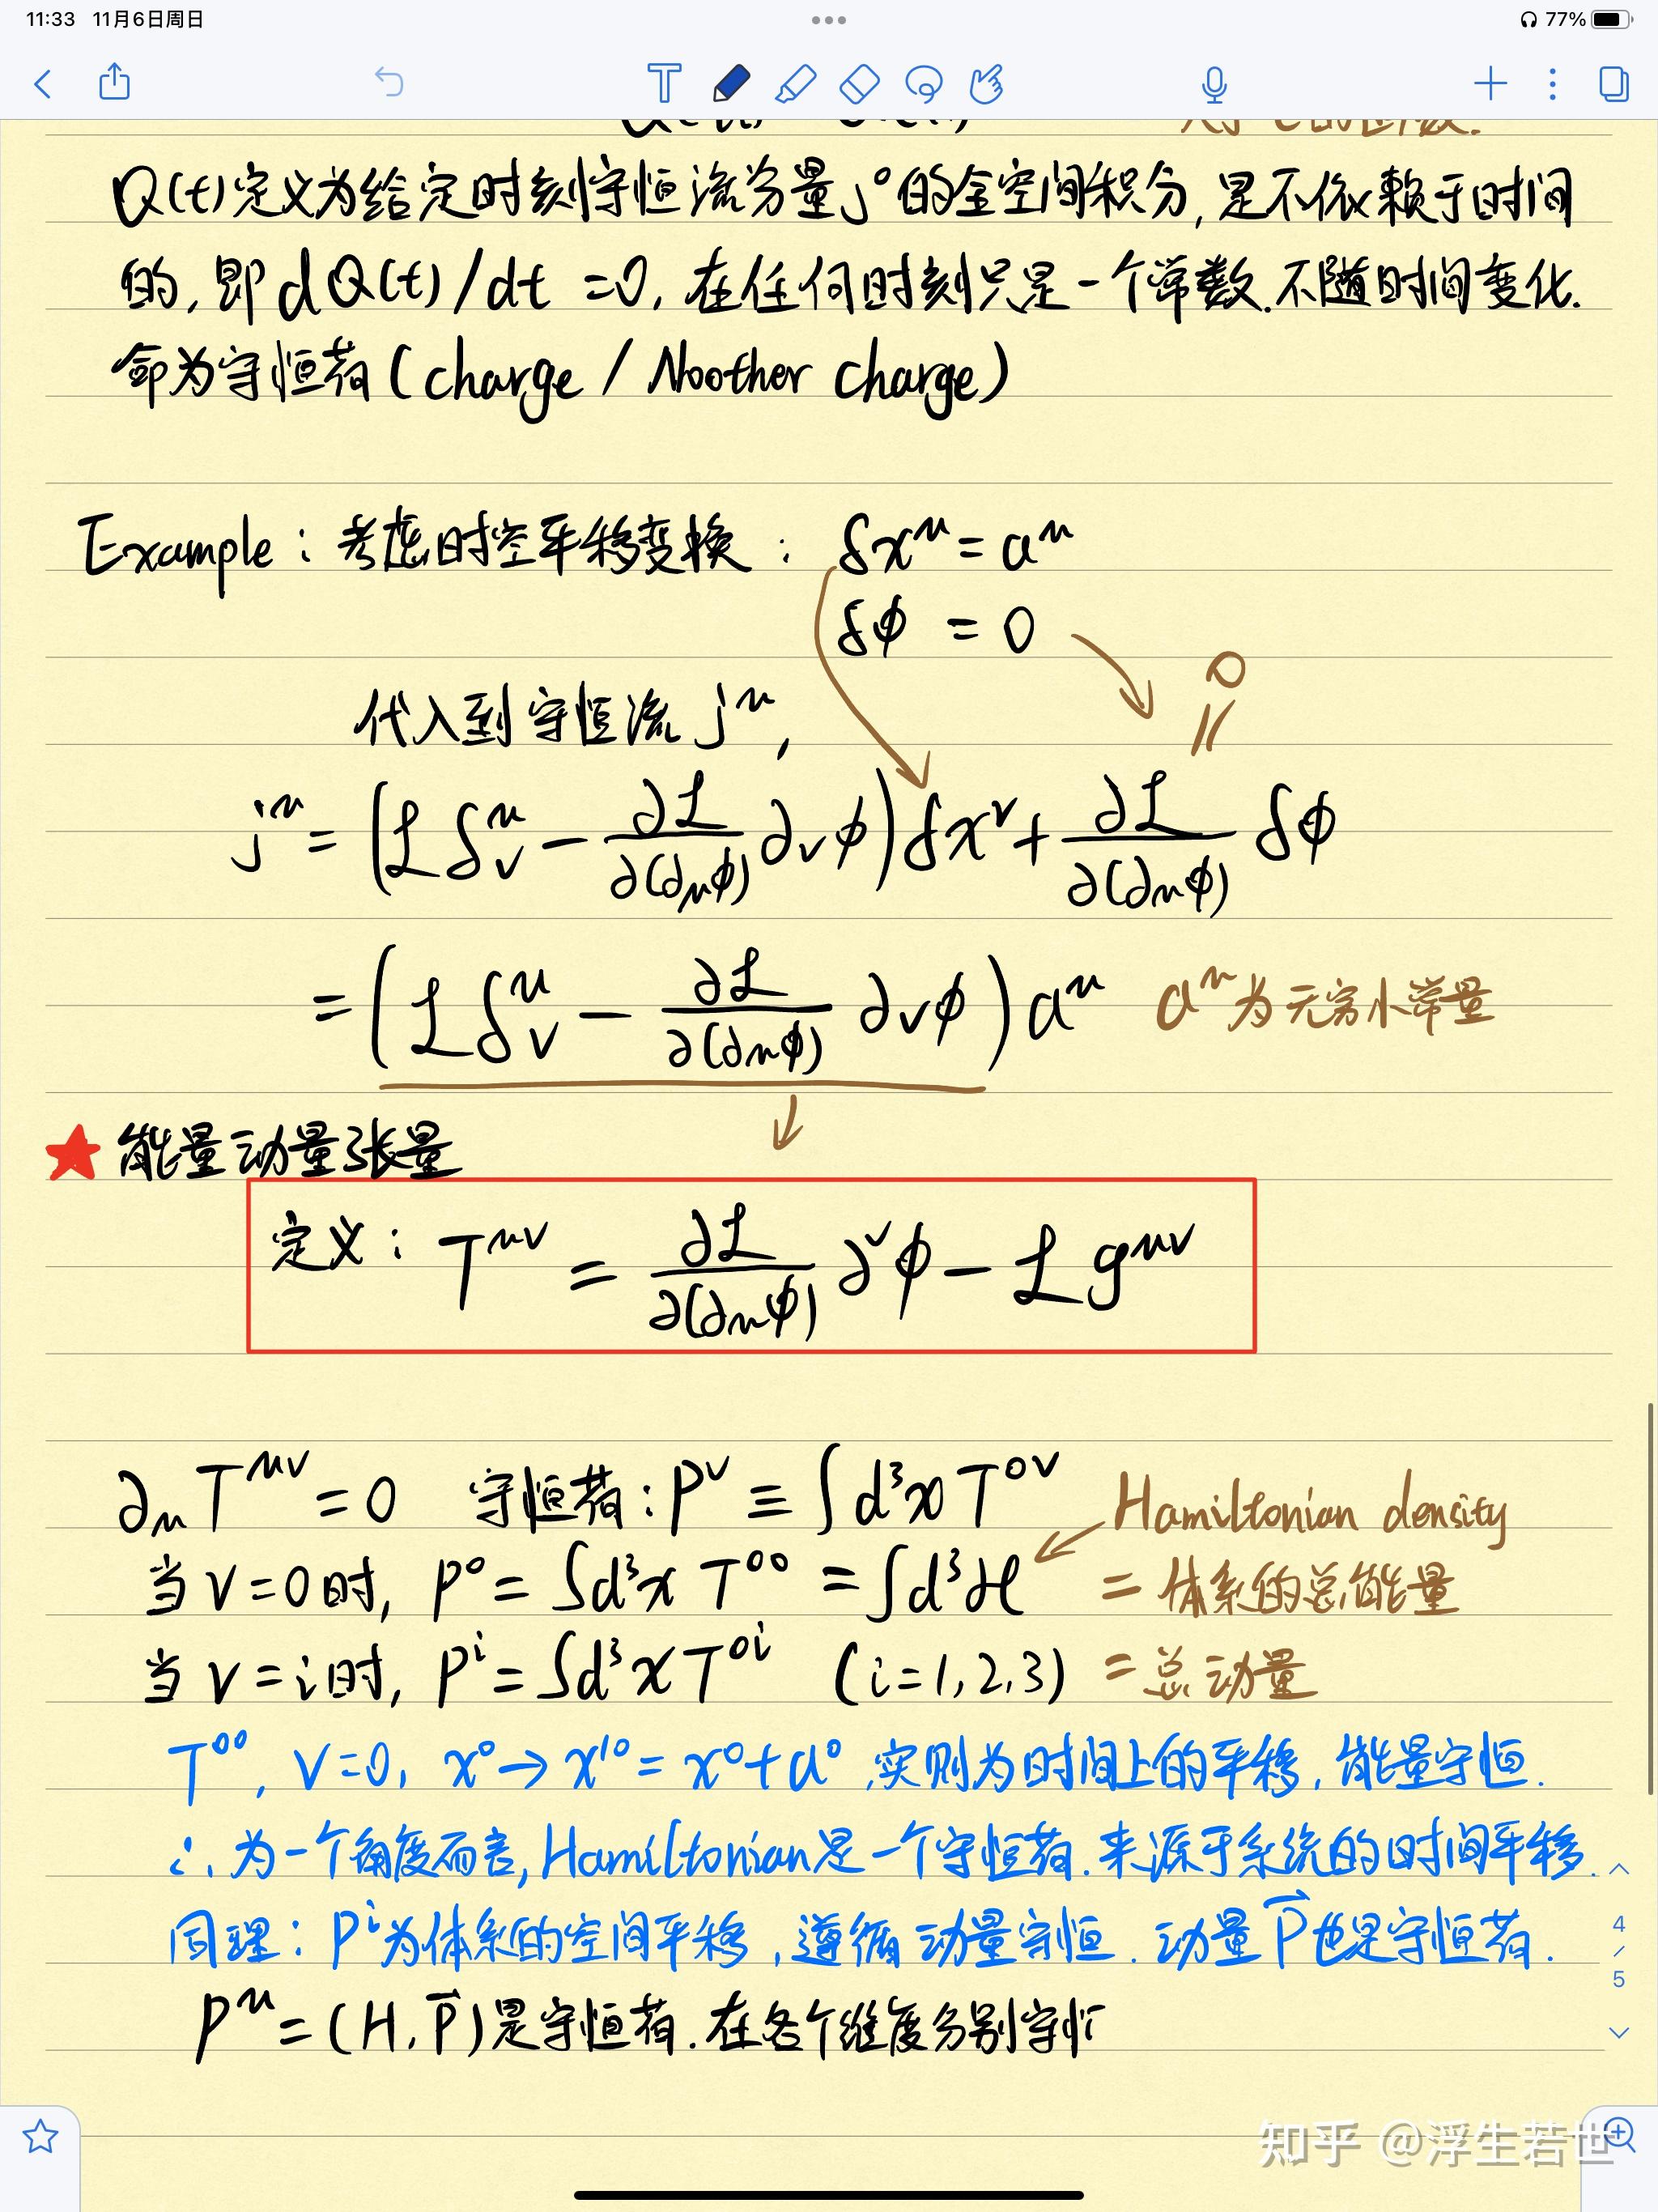 11:33 11月6日周日
77%
Q(t)定义为给定时刻守恒流分量j⁰的全空间积分,是不依赖于时间
的,即dQ(t)/dt =0,在任何时刻只是一个常数.不随时间变化.
命为守恒荷(charge / Noother charge)
Example:考虑时空平移变换: δx^μ = a^μ
δφ = 0
0
||
代入到守恒流 j^μ,
j^μ = (ℒ δ^μ_ν − ∂ℒ/∂(∂_μφ) ∂_νφ) δx^ν + ∂ℒ/∂(∂_μφ) δφ
= (ℒ δ^μ_ν − ∂ℒ/∂(∂_μφ) ∂_νφ) a^μ a^μ为无穷小常量
★ 能量动量张量
定义: T^μν = ∂ℒ/∂(∂_μφ) ∂^νφ − ℒ g^μν
∂_μ T^μν = 0 守恒荷: P^ν ≡ ∫d³x T^0ν
Hamiltonian density
当 ν=0时, P⁰ = ∫d³x T⁰⁰ = ∫d³ℋ = 体系的总能量
当 ν=i时, P^i = ∫d³x T^0i (i=1,2,3) = 总动量
T⁰⁰, ν=0, x⁰→x'⁰ = x⁰+a⁰,实则为时间上的平移,能量守恒.
∴ 为一个角度而言,Hamiltonian是一个守恒荷.来源于系统的时间平移.
同理: P^i为体系的空间平移,遵循动量守恒.动量P⃗也是守恒荷.
P^μ = (H, P⃗)是守恒荷.在各个维度分别守
4
/
5
知乎 @浮生若世